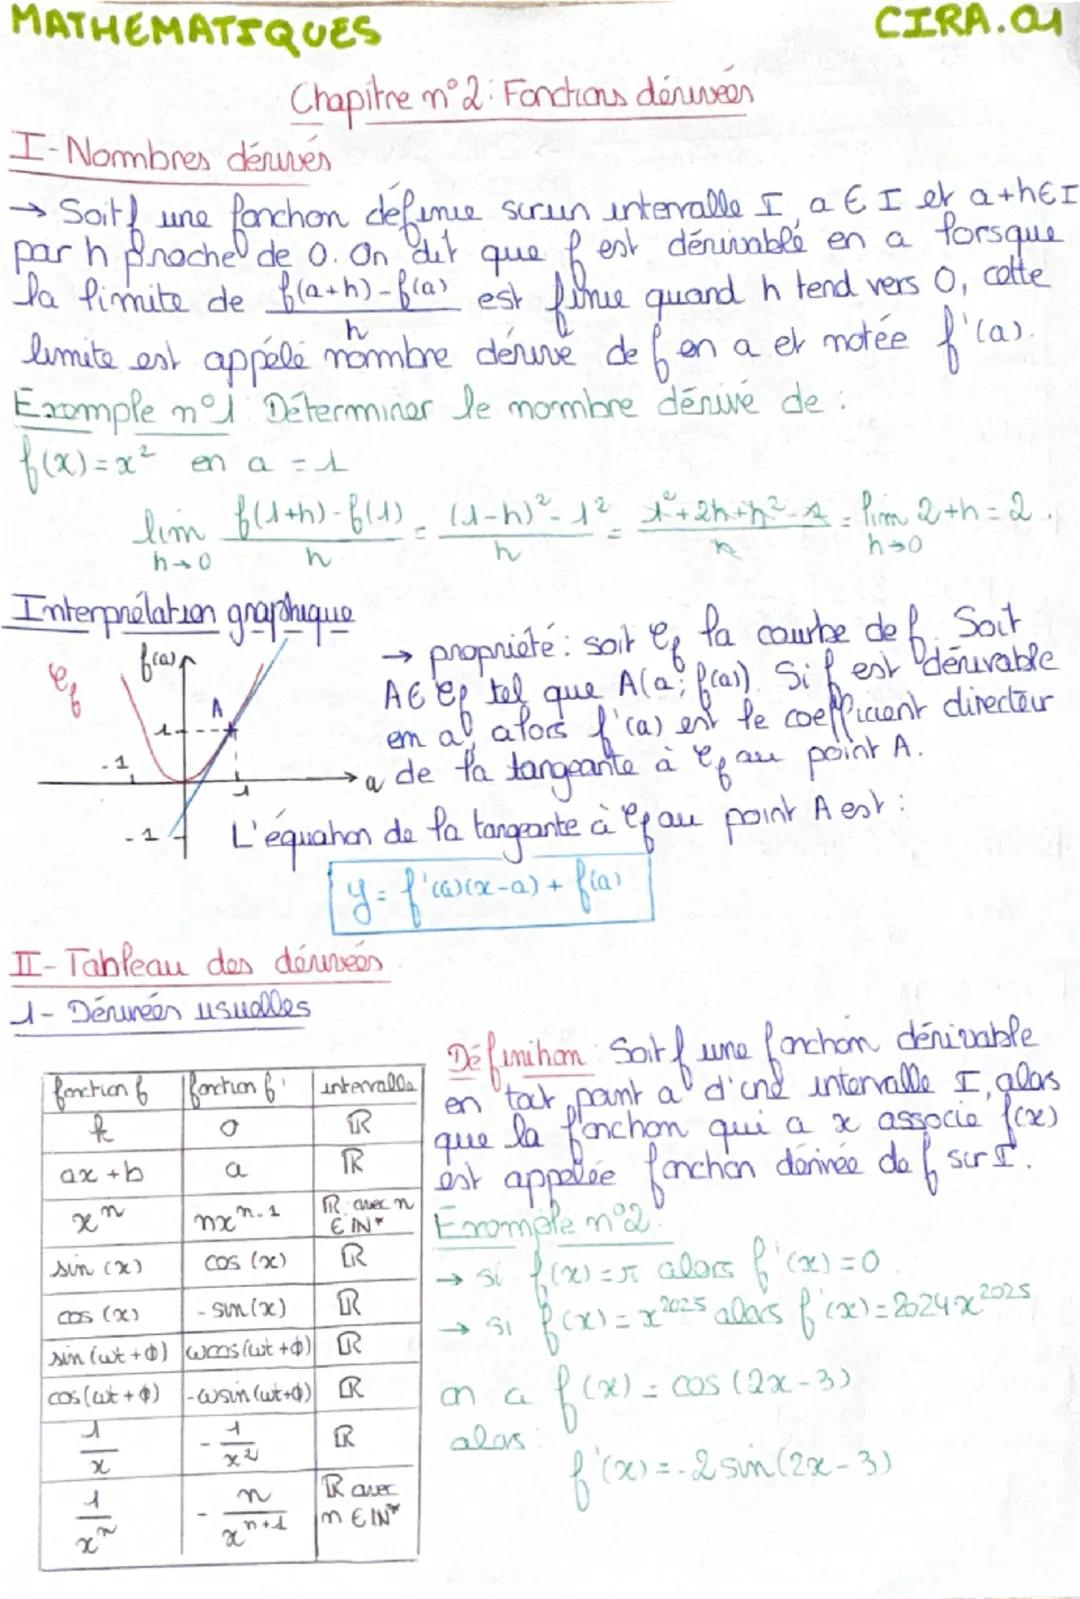 MATHEMATIQUES CIRA.01
Chapitre n°2: Fonctions dérivées
I- Nombres dérivés
→ Soit f une fonction définie sur un intervalle I, a ∈ I et a+h∈I
par h proche de 0. On dit que f est dérivable en a lorsque
la limite de (f(a+h)-f(a))/h est finie quand h tend vers 0, cette
limite est appelé nombre dérivé de f en a et notée f'(a).
Exemple n°1 Déterminer le nombre dérivé de :
f(x)=x² en a = 1
lim h→0 (f(1+h)-f(1))/h = ((1-h)²-1²)/h = (1²+2h+h²-1)/h = lim h→0 2+h = 2.
Interprétation graphique
Cf f(a) A 1 -1 1 a -1
→ propriété: soit Cf la courbe de f. Soit
A∈ Cf tel que A(a; f(a)). Si f est dérivable
en a, alors f'(a) est le coefficient directeur
de la tangeante à Cf au point A.
L'équation de la tangeante à Cf au point A est :
y = f'(a)(x-a) + f(a)
II- Tableau des dérivées
1- Dérivées usuelles
fonction f | fonction f' | intervalle
k | 0 | ℝ
ax+b | a | ℝ
xⁿ | nxⁿ⁻¹ | ℝ avec n ∈ ℕ*
sin (x) | cos (x) | ℝ
cos (x) | - sin(x) | ℝ
sin (ωt+ϕ) | ωcos(ωt+ϕ) | ℝ
cos(ωt+ϕ) | -ωsin(ωt+ϕ) | ℝ
1/x | - 1/x² | ℝ
1/xⁿ | - n/xⁿ⁺¹ | ℝ avec n ∈ ℕ*
Définition: Soit f une fonction dérivable
en tout point a d'une intervalle I, alors
que la fonction qui a x associe f(x)
est appelée fonction dérivée de f sur I.
Exemple n°2.
→ si f(x)=π alors f'(x)=0
→ si f(x)=x²⁰²⁵ alors f'(x)=2024x²⁰²⁵
on a f(x)=cos(2x-3)
alors
f'(x)=-2sin(2x-3)